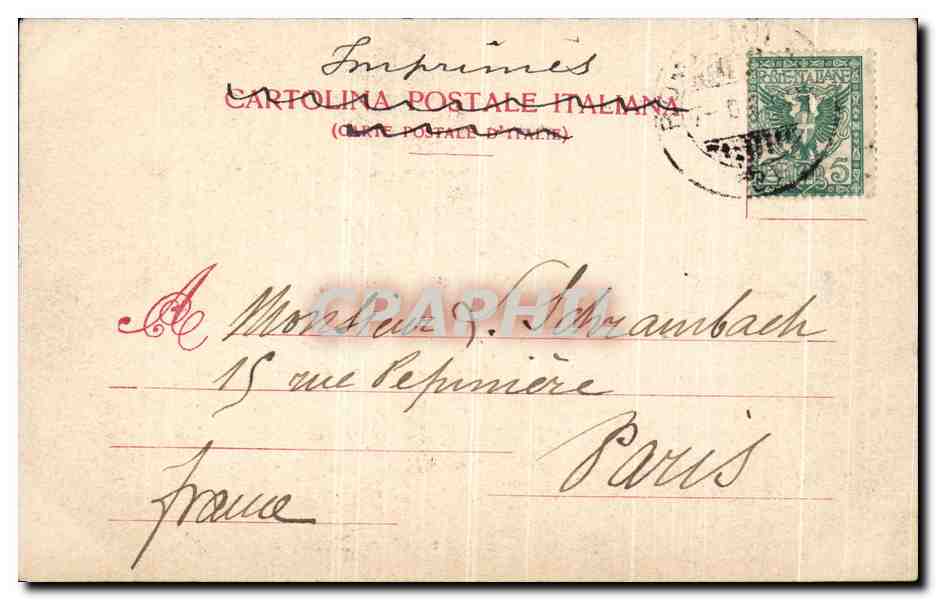 Imprimés
CARTOLINA POSTALE ITALIANA
(CARTE POSTALE D'ITALIE)
POSTE ITALIANE
5
CPAPHIL
A Monsieur Schrambach
15 rue Pepinière
Paris
france